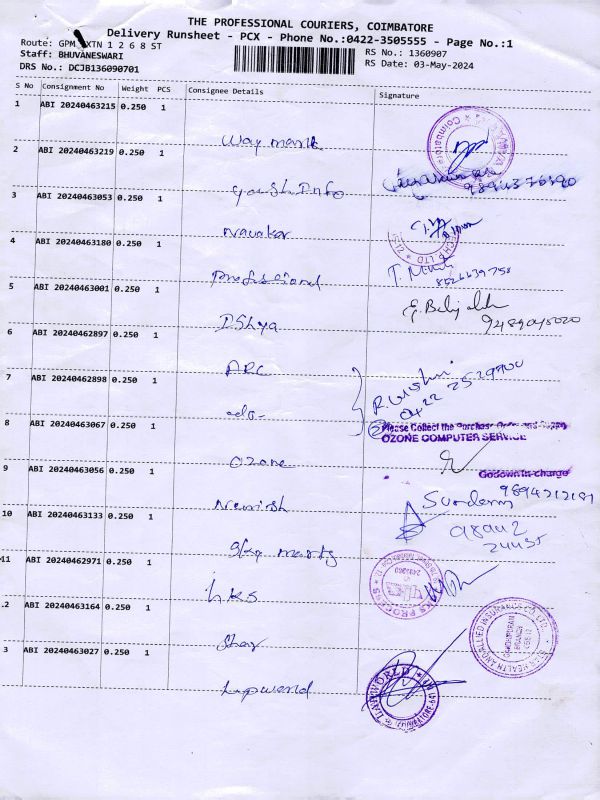 THE PROFESSIONAL COURIERS, COIMBATORE
Delivery Runsheet - PCX - Phone No.:0422-3505555 - Page No.:1
Route: GPM XTN 1 2 6 8 ST
RS No.: 1360907
Staff: BHUVANESWARI
RS Date: 03-May-2024
DRS No.: DCJB136090701
S No Consignment No Weight PCS Consignee Details Signature
1 ABI 20240463215 0.250 1
Way mark
2 ABI 20240463219 0.250 1
3 ABI 20240463053 0.250 1
Navakar
4 ABI 20240463180 0.250 1
Professional
8526639758
5 ABI 20240463001 0.250 1
9489045020
6 ABI 20240462897 0.250 1
ARC
7 ABI 20240462898 0.250 1
-do-
R. Vishnu
0422 2529900
8 ABI 20240463067 0.250 1
Ozone
Please Collect the Purchase
OZONE COMPUTER SERVICE
Godown In-charge
9 ABI 20240463056 0.250 1
9894212181
10 ABI 20240463133 0.250 1
11 ABI 20240462971 0.250 1
hks
.2 ABI 20240463164 0.250 1
Star
3 ABI 20240463027 0.250 1
Lapworld